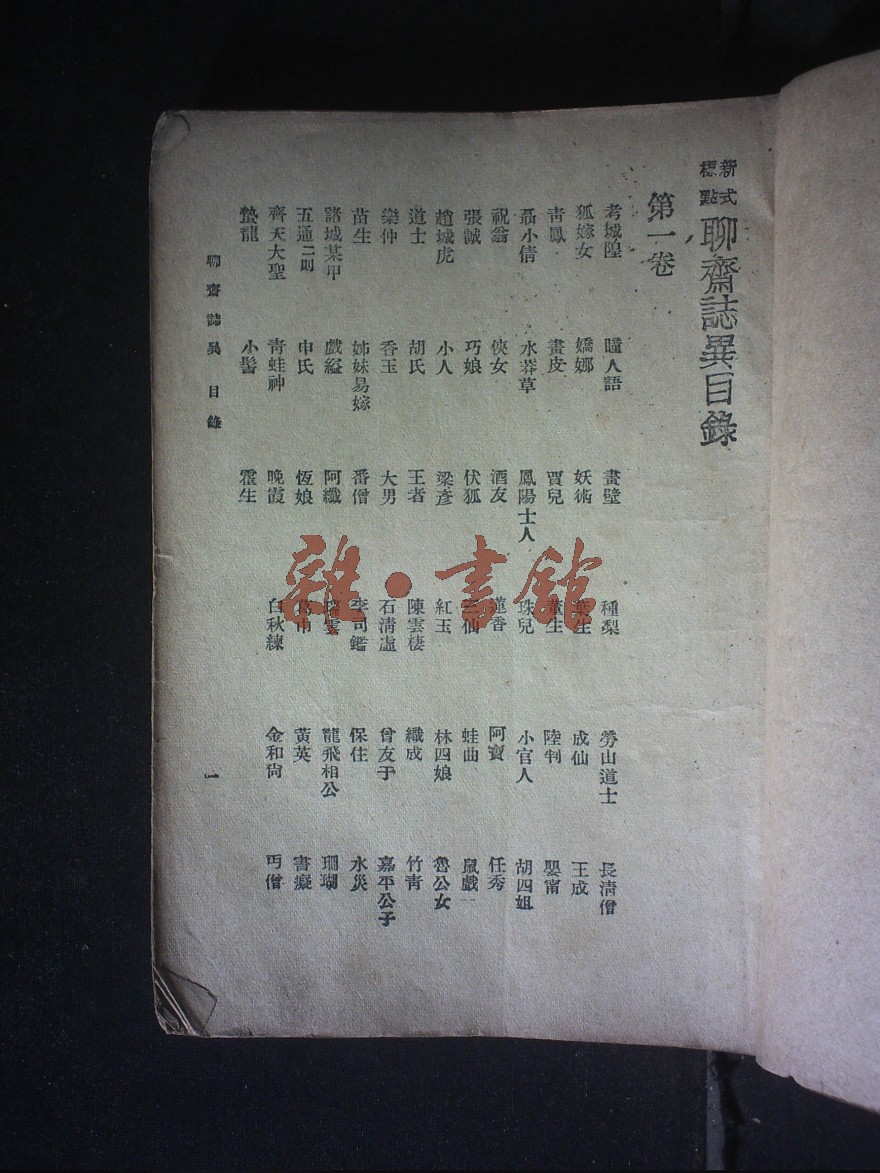 新式標點 聊齋誌異目錄
第一卷
考城隍 瞳人語 畫壁 種梨 勞山道士 長清僧
狐嫁女 嬌娜 妖術 葉生 成仙 王成
青鳳 畫皮 賈兒 董生 陸判 嬰甯
聶小倩 水莽草 鳳陽士人 珠兒 小官人 胡四姐
祝翁 俠女 酒友 蓮香 阿寶 任秀
張誠 巧娘 伏狐 三仙 蛙曲 鼠戲
趙城虎 小人 梁彥 紅玉 林四娘 魯公女
道士 胡氏 王者 陳雲棲 織成 竹青
樂仲 香玉 大男 石清虛 曾友于 嘉平公子
苗生 姊妹易嫁 番僧 李司鑑 保住 水災
諸城某甲 戲縊 阿纖 瑞雲 龍飛相公 珊瑚
五通二則 申氏 恆娘 葛巾 黃英 書癡
齊天大聖 青蛙神 晚霞 白秋練 金和尚 丐僧
蟄龍 小髻 霍生
聊齋誌異 目錄 1
雜·書館